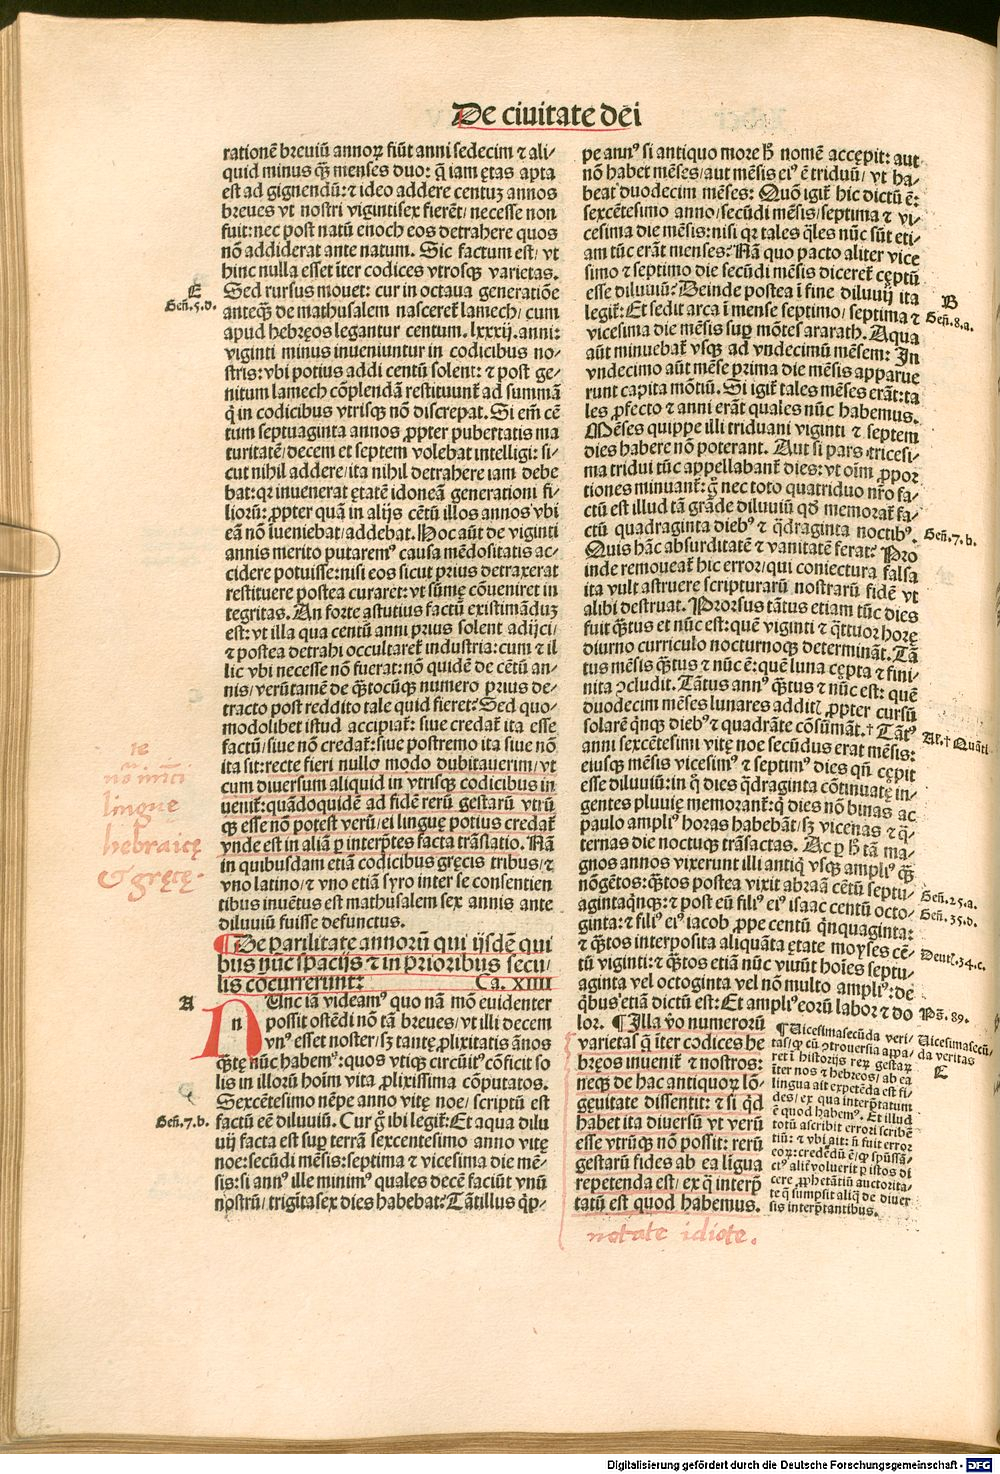 De ciuitate dēi
rationē breuiū annoꝝ fiūt anni sedecim ⁊ ali/
quid minus q̄ꝫ menses duo: q̄ iam ętas apta
est ad gignendū: ⁊ ideo addere centuꝫ annos
breues vt nostri vigintisex fierēt/ necesse non
fuit: nec post natū enoch eos detrahere quos
nō addiderat ante natum. Sic factum est/ vt
hinc nulla esset īter codices vtrosqꝫ varietas.
E
Geñ.5.d.
Sed rursus mouet: cur in octaua generatiōe
anteqꝫ̄ de mathusalem nasceret̄ lamech/ cum
apud hebręos legantur centum. lxxxij. anni:
viginti minus inueniuntur in codicibus no/
stris: vbi potius addi centū solent: ⁊ post ge/
nitum lamech cōplendā restituunt̄ ad summā
q̄ in codicibus vtrisqꝫ nō discrepat. Si em̄ cē
tum septuaginta annos ꝓpter pubertatis ma
turitatē/ decem et septem volebat intelligi: si/
cut nihil addere/ ita nihil detrahere iam debe
bat: qꝛ inuenerat ętatē idoneā generationi fi/
liorū: ꝓpter quā in alijs cētū illos annos vbi
eā nō īueniebat/ addebat. Hoc aūt de viginti
annis merito putaremꝰ causa mēdositatis ac/
cidere potuisse: nisi eos sicut prius detraxerat
restituere postea curaret: vt sūmę cōueniret in
tegritas. An forte astutius factū existimāduꝫ
est: vt illa qua centū anni prius solent adijci/
⁊ postea detrahi occultaret̄ industria: cum ⁊ il
lic vbi necesse nō fuerat: nō quidē de cētū an/
nis/ verūtamē de q̄tocūqꝫ numero prius de/
tracto post reddito tale quid fieret? Sed quo/
modolibet istud accipiat̄: siue credat̄ ita esse
factū/ siue nō credat̄: siue postremo ita siue nō
ita sit: recte fieri nullo modo dubitauerim/ vt
cum diuersum aliquid in vtrisqꝫ codicibus in
uenit̄: quādoquidē ad fidē rerū gestarū vtrū
qꝫ esse nō potest verū/ ei linguę potius credat̄
vnde est in aliā ꝑ interp̄tes facta trāslatio. Nā
in quibusdam etiā codicibus gręcis tribus/ ⁊
vno latino/ ⁊ vno etiā syro inter se consentien
tibus inuētus est mathusalem sex annis ante
diluuiū fuisse defunctus.
lingue
hebraicę
& gręcę.
¶ De parilitate annorū qui ijsdē qui
bus nūc spacijs ⁊ in prioribus secu/
lis cōcurrerunt: Ca. XIIII
A
NUnc iā videamꝰ quo nā mō euidenter
n
possit ostēdi nō tā breues/ vt illi decem
vnꝰ esset noster/ sꝫ tantę ꝓlixitatis ānos
q̄tę nūc habemꝰ: quos vtiqꝫ circuitꝰ cōficit so
lis in illorū hoīm vita ꝓlixissima cōputatos.
Sexcētesimo nēpe anno vitę noe/ scriptū est
Geñ.7.b.
factū eē diluuiū. Cur g̊ ibi legit̄: Et aqua dilu
uij facta est suꝑ terrā sexcentesimo anno vitę
noe: secūdi mēsis: septima ⁊ vicesima die mē/
sis: si annꝰ ille minimꝰ quales decē faciūt vnū
nostrū/ trigītasex dies habebat? Tātillus q̄p/
pe annꝰ si antiquo more h̄ nomē accępit: aut
nō habet mēses/ aut mēsis eiꝰ ē triduū/ vt ha/
beat duodecim mēses: Quō igit̄ hic dictū ē:
sexcētesimo anno/ secūdi mēsis/ septima ⁊ vi/
cesima die mēsis: nisi qꝛ tales q̄les nūc sūt eti/
am tūc erāt menses? Nā quo pacto aliter vice
simo ⁊ septimo die secūdi mēsis diceret̄ cęptū
esse diluuiū? Deinde postea ī fine diluuij ita
B
Geñ.8.a.
legit̄: Et sedit arca ī mense septimo/ septima ⁊
vicesima die mēsis suꝑ mōtes ararath. Aqua
aūt minuebat̄ vsqꝫ ad vndecimū mēsem: In
vndecimo aūt mēse prima die mēsis apparue
runt capita mōtiū. Si igit̄ tales mēses erāt: ta
les ꝓfecto ⁊ anni erāt quales nūc habemus.
Mēses quippe illi triduani viginti ⁊ septem
dies habere nō poterant. Aut si pars tricesi/
ma tridui tūc appellabant̄ dies: vt oīm ꝓpor
tiones minuant̄: g̊ nec toto quatriduo nr̄o fa/
ctū est illud tā grāde diluuiū qd̄ memorat̄ fa/
ctū quadraginta diebꝰ ⁊ q̄draginta noctibꝰ.
Geñ.7.b.
Quis hāc absurditatē ⁊ vanitatē ferat? Pro
inde remoueat̄ hic error/ qui coniectura falsa
ita vult astruere scripturarū nostrarū fidē vt
alibi destruat. Prorsus tātus etiam tūc dies
fuit q̄tus et nūc est: quē viginti ⁊ q̄ttuor horę
diurno curriculo nocturnoqꝫ determināt. Tā
tus mēsis q̄tus ⁊ nūc ē: quē luna cępta ⁊ fini/
nita ↄcludit. Tātus annꝰ q̄tus ⁊ nūc est: quē
duodecim mēses lunares additꝭ ꝓpter cursū
solarē q̄nqꝫ diebꝰ ⁊ quadrāte cōsūmāt.† Tātꝰ
At.† Quāti
anni sexcētesimi vitę noe secūdus erat mēsis:
eiusqꝫ mēsis vicesimꝰ ⁊ septimꝰ dies qn̄ cępit
esse diluuiū: in q̊ dies q̄draginta cōtinuatę in/
gentes pluuię memorant̄: q̄ dies nō binas ac
paulo ampliꝰ horas habebāt/ sꝫ vicenas ⁊ q̄/
ternas die noctuqꝫ trāsactas. Ac ꝑ h̄ tā ma/
gnos annos vixerunt illi antiq̄ vsqꝫ ampliꝰ q̄ꝫ
nōgētos: q̄tos postea vixit abraā cētū septu/
Geñ.25.a.
agintaq̄nqꝫ: ⁊ post eū filiꝰ eiꝰ isaac centū octo/
Geñ.35.d.
ginta: ⁊ filiꝰ eiꝰ iacob ꝓpe centū q̄nquaginta:
⁊ q̄tos interposita aliquāta ętate moyses cē/
Deut̄.34.c.
tū viginti: ⁊ q̄tos etiā nūc viuūt hoīes septu/
aginta vel octoginta vel nō multo ampliꝰ: de
q̄bus etiā dictū est: Et ampliꝰ eorū labor ⁊ do
Ps̄. 89.
lor. ¶ Illa v̊o numerorū
varietas q̄ īter codices he
bręos inuenit̄ ⁊ nostros:
neqꝫ de hac antiquoꝝ lō/
gęuitate dissentit: ⁊ si q̄d
habet ita diuersū vt verū
esse vtrūqꝫ nō possit: rerū
gestarū fides ab ea līgua
repetenda est/ ex q̄ interp̄
tatū est quod habemus.
¶ Uicesimasecūda veri/
tas/ qꝫ cū ↄtrouersia appa/
ret ī historijs reꝝ gestaꝝ
īter nos ⁊ hebreos/ ab ea
lingua ait expetēda est fi/
des/ ex qua interp̄tatum
ē quod habemꝰ. Et illud
totū ascribit errori scribē
tiū: ⁊ vbi ait: n̄ fuit error
eoꝝ: credēdū ē/ qꝫ spūssā/
ctꝰ aliē voluerit ꝑ istos di
cere/ ꝓphetātiū auctorita/
te q̄ sumpsit aliq̄ de diuer
sis interp̄tantibus.
Uicesimasecū/
da veritas
E
notate idiote.
Digitalisierung gefördert durch die Deutsche Forschungsgemeinschaft - DFG